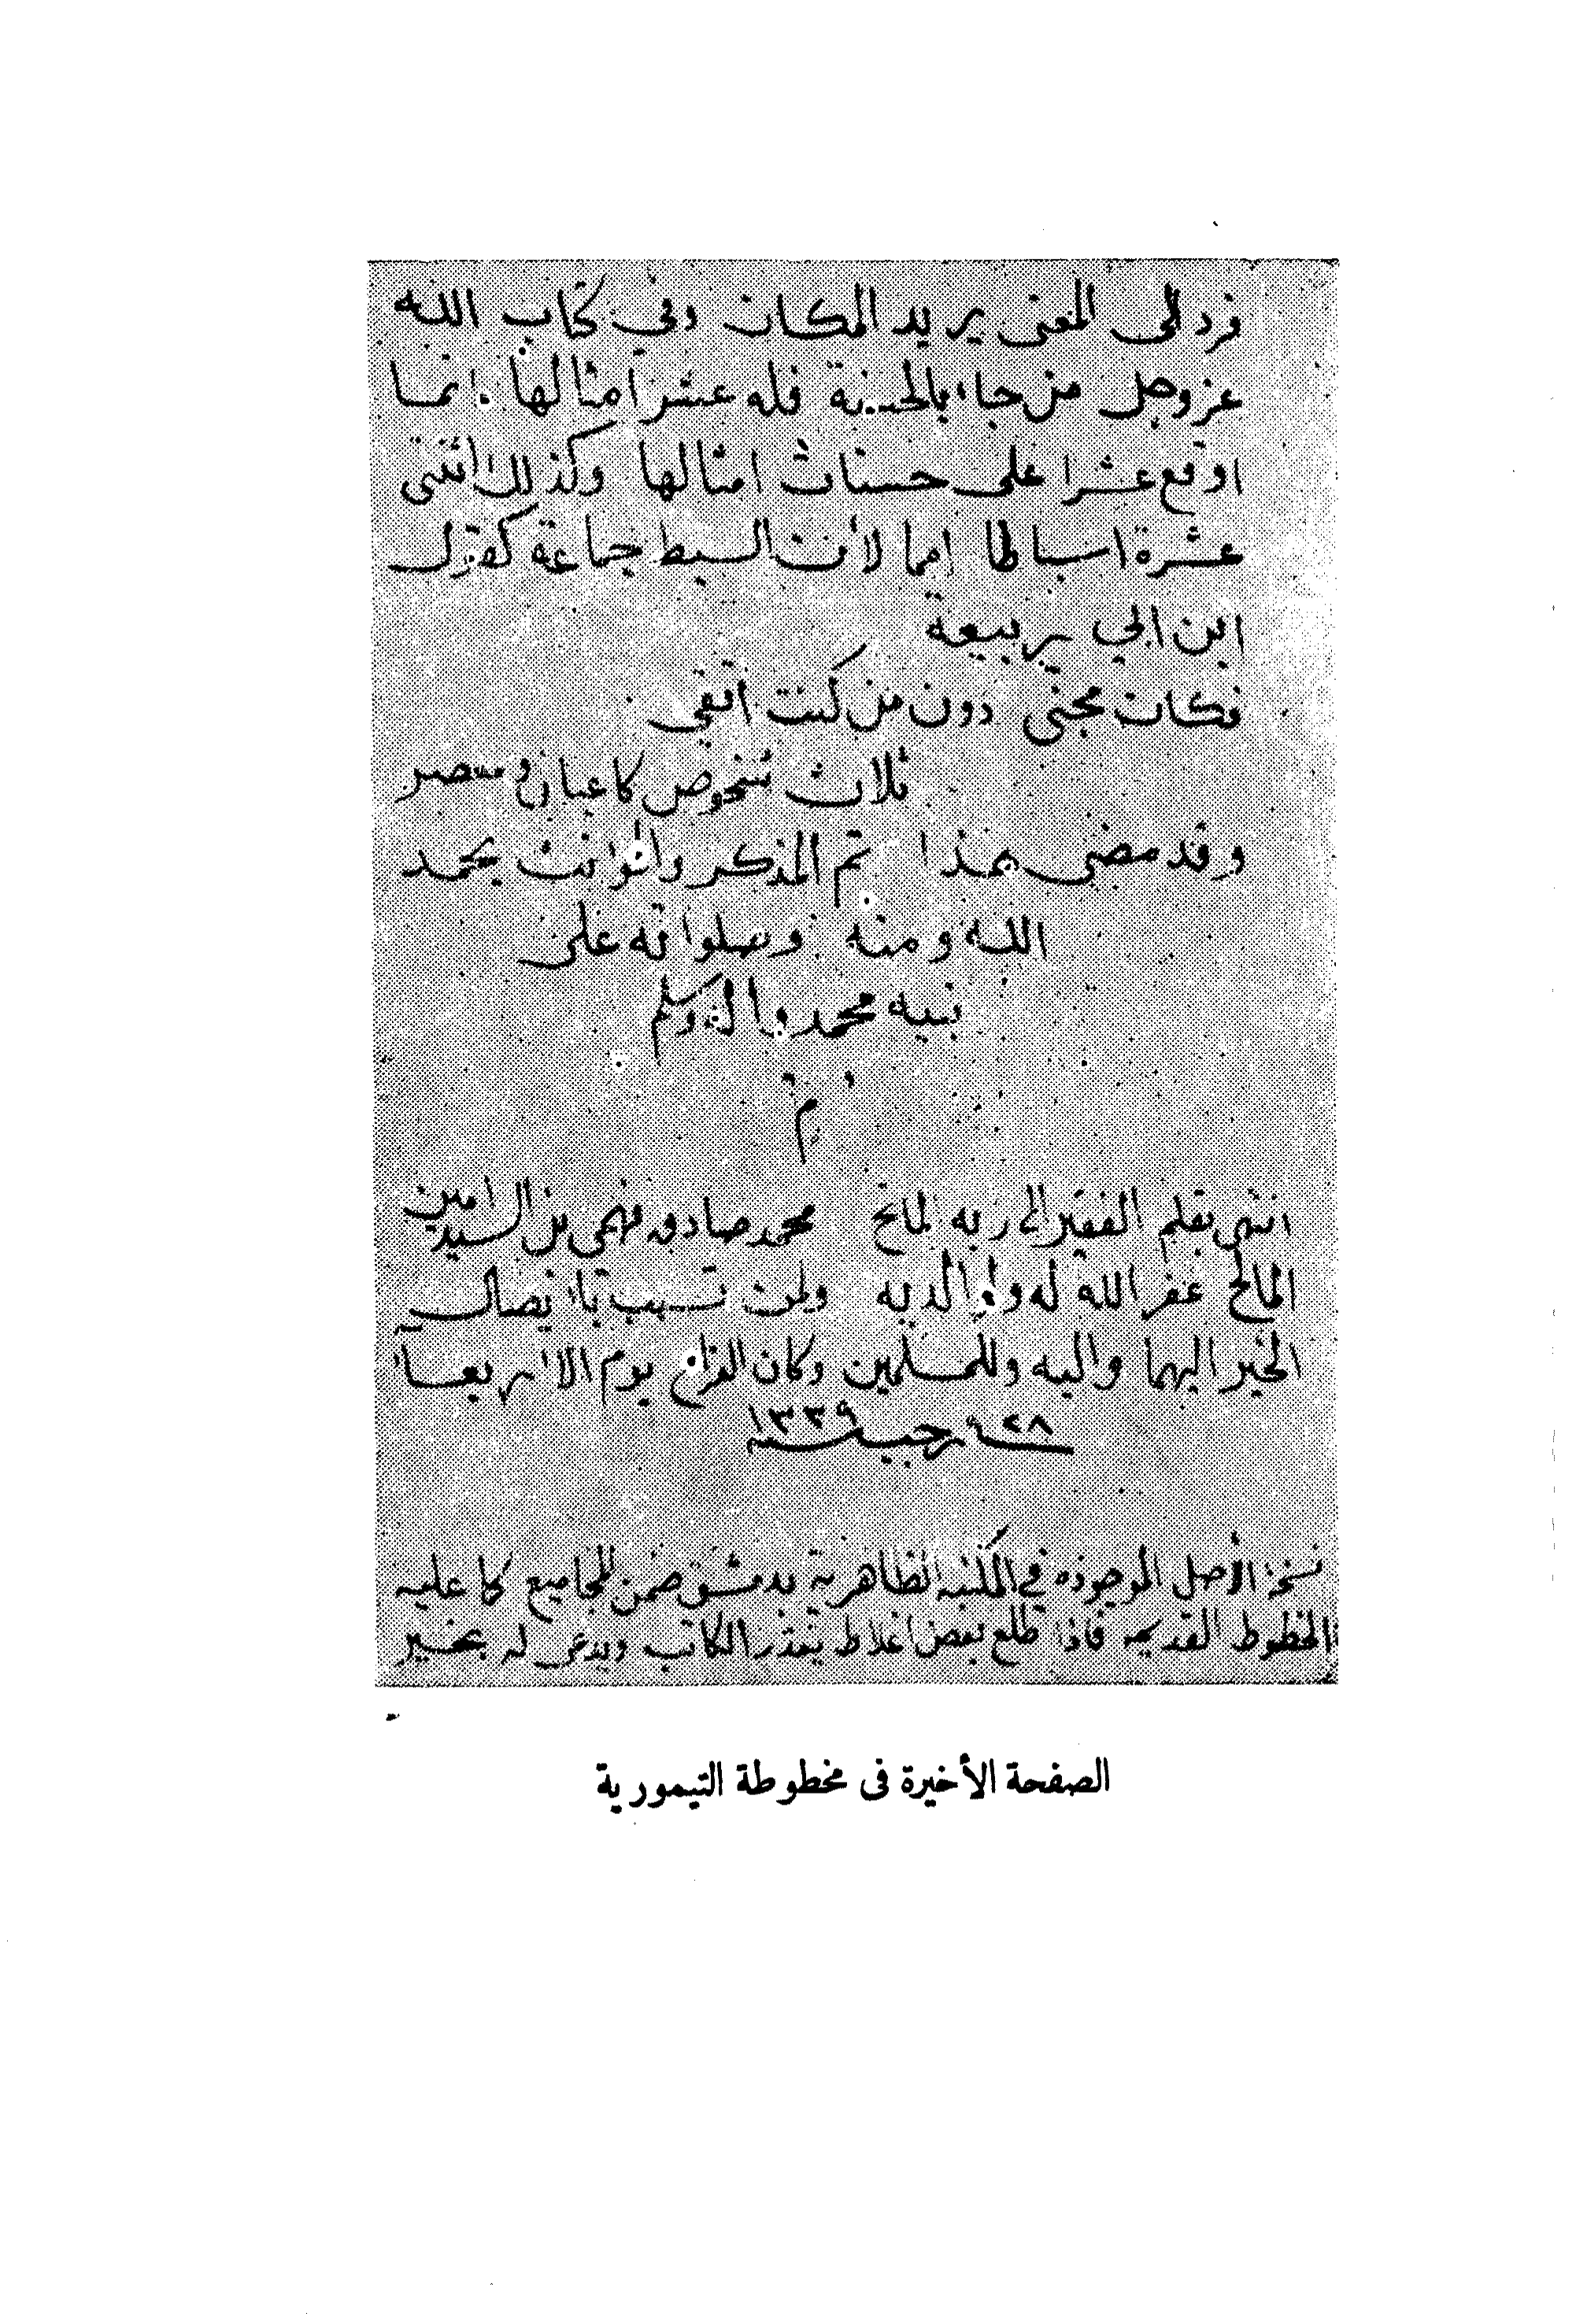 فرد الى المعنى يريد المكان وفي كتاب الله
عز وجل من جاء بالحسنة فله عشر امثالها انما
اوقع عشرا على حسنات امثالها وكذلك اثنتى
عشرة اسباطا انما لان السبط جماعة كقول
ابن ابي ربيعة
فكان مجنى دون من كنت اتقي
ثلاث شخوص كاعبان ومعصر
وقد مضى هذا تم المذكر والمؤنث بحمد
الله ومنه وصلواته على
نبيه محمد واله وسلم
م
انتهى بقلم الفقير الى ربه المالح محمد صادق فهمى بن السيد امين
المالح غفر الله له ولوالديه ولمن تسبب بايصال
الخير اليهما واليه وللمسلمين وكان الفراغ يوم الاربعاء
٢٨ رجب سنة ١٣٣٩
نسخة الأصل الموجوده في المكتبه الظاهرية بدمشق ضمن المجاميع كما عليه
الخطوط القديمه فاذا طلع بعض اغلاط يعذر الكاتب ويدعى له بخير
الصفحة الأخيرة فى مخطوطة التيمورية